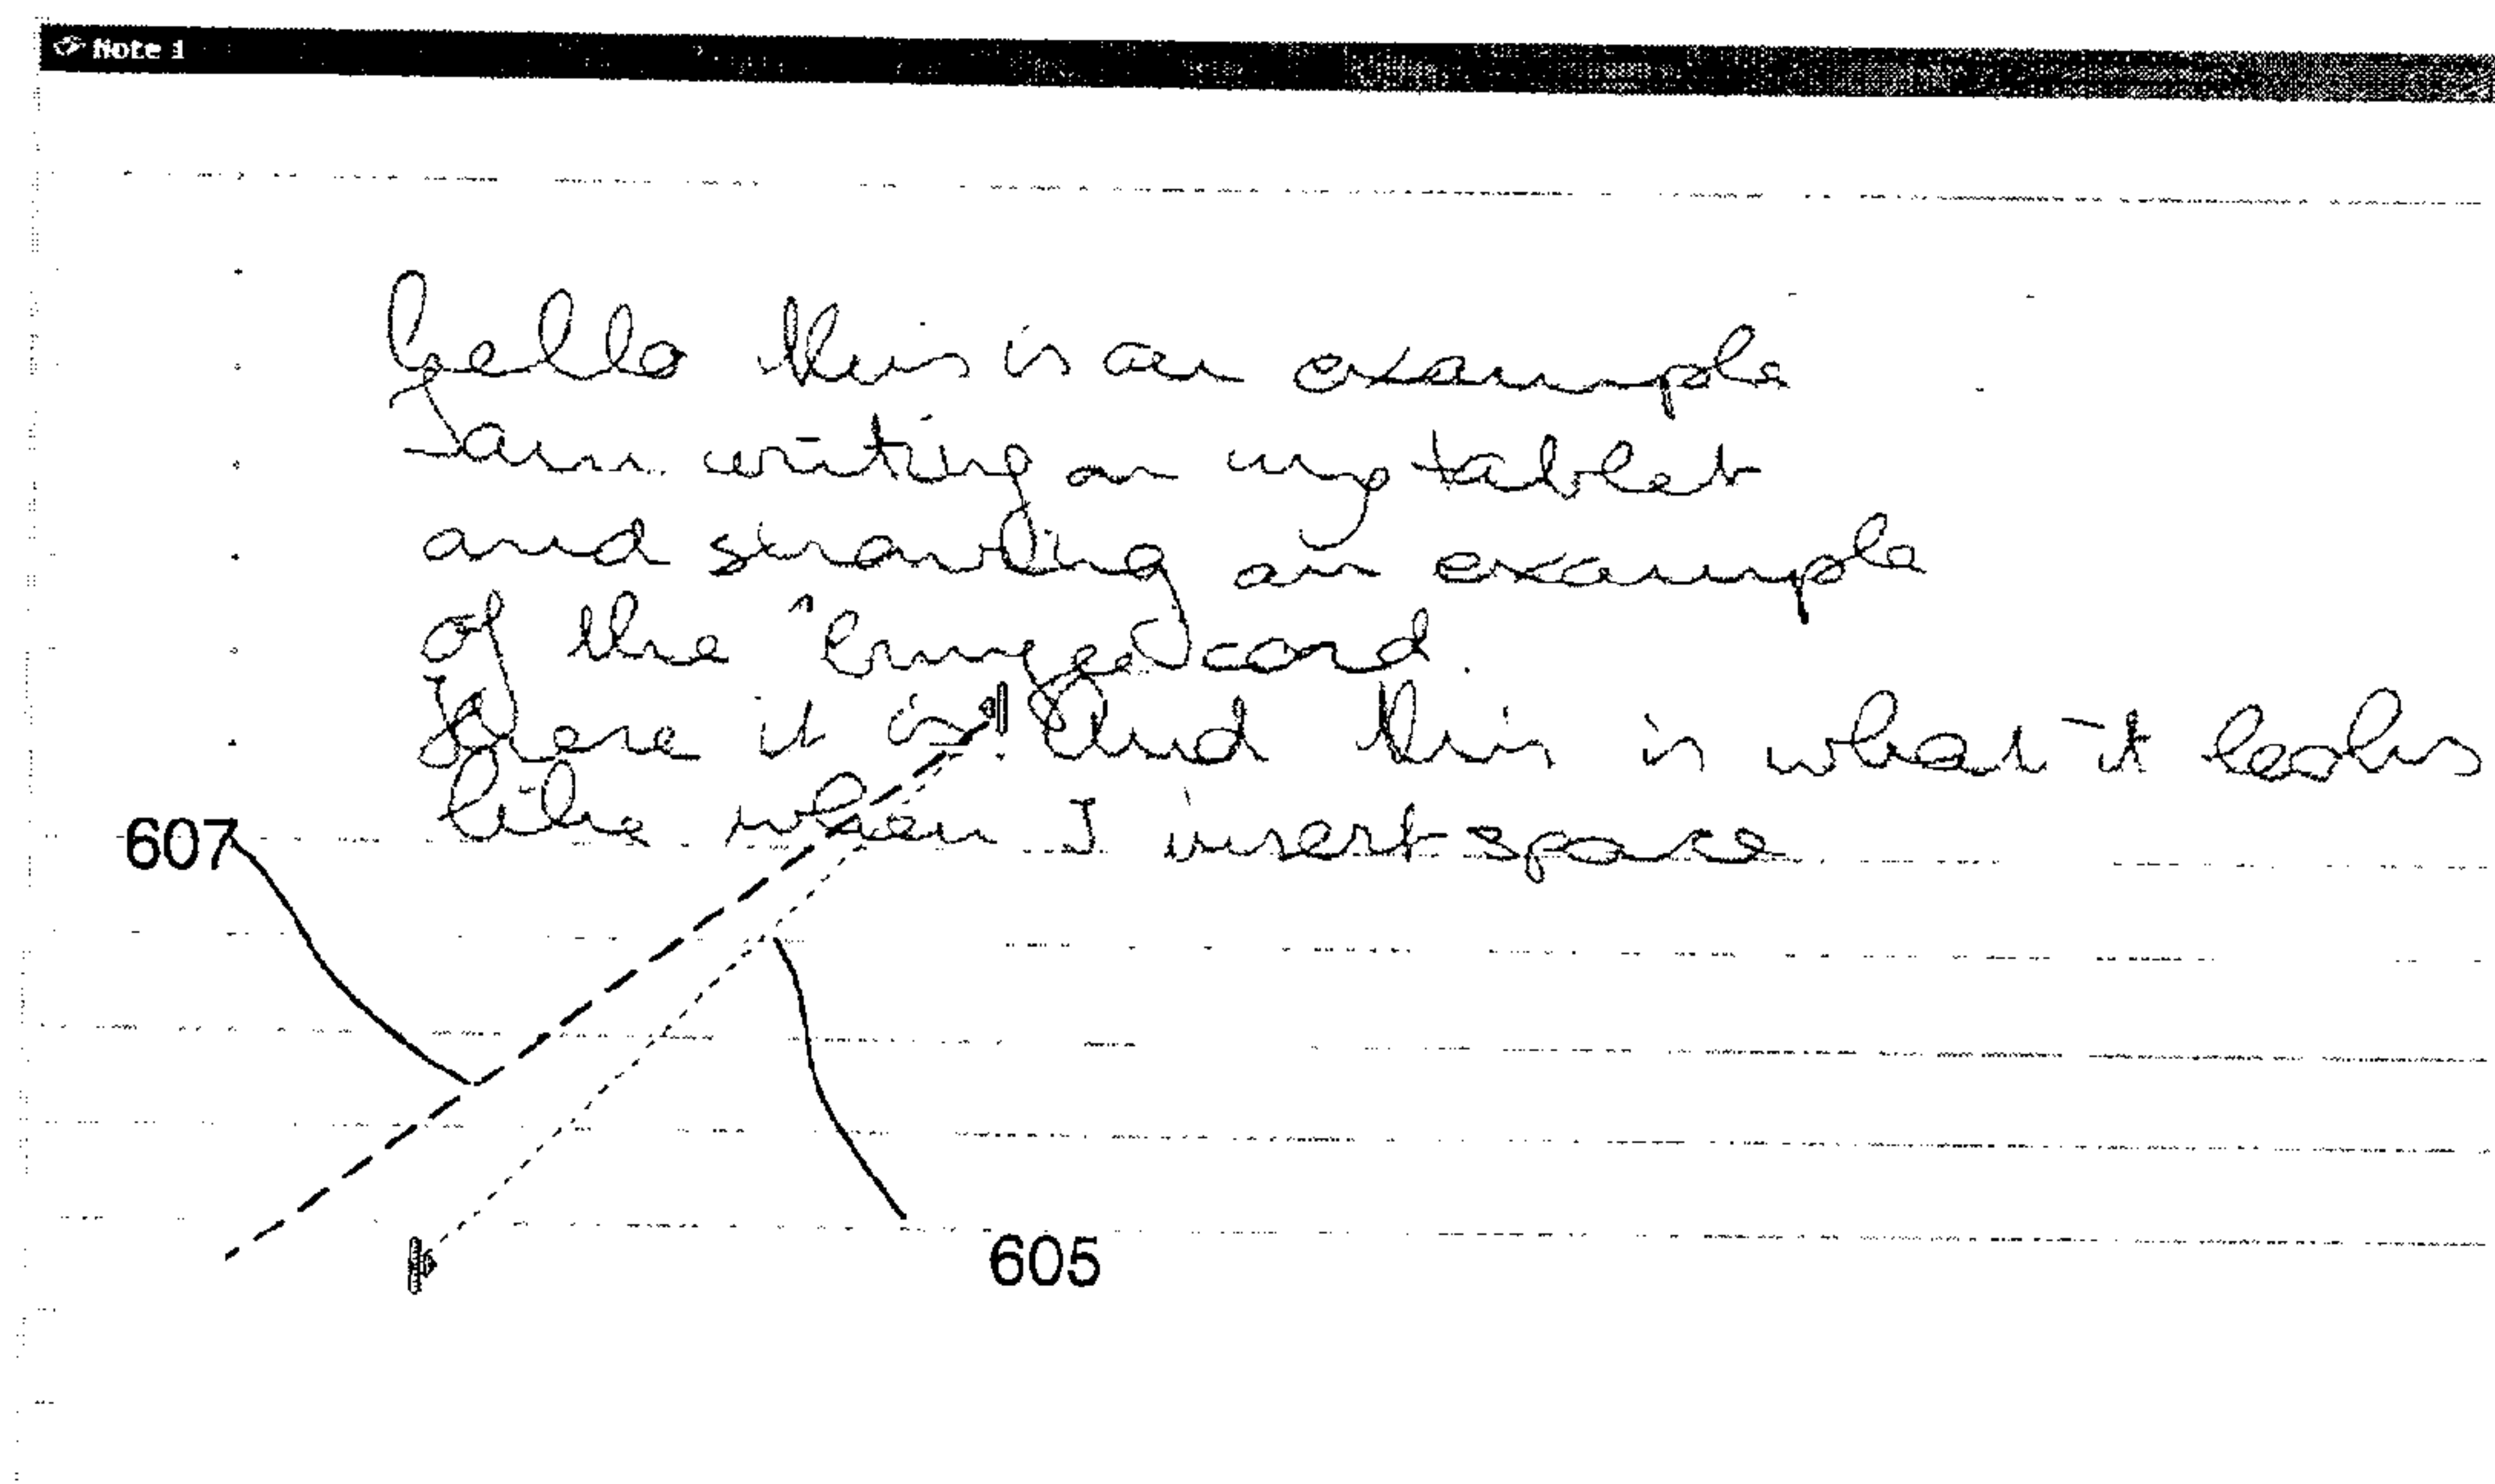 Note 1
hello this is an example
I am writing on my tablet
and scrawling an example
of the "hinged cord.
Here it is And this is what it looks
like when I insert space
607
605